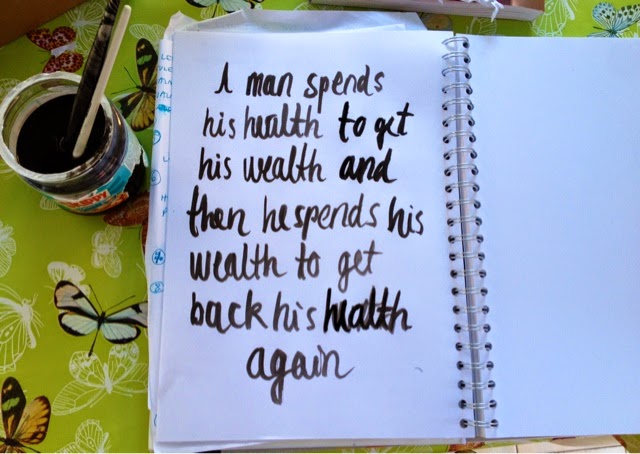 A man spends
his health to get
his wealth and
then he spends his
wealth to get
back his health
again